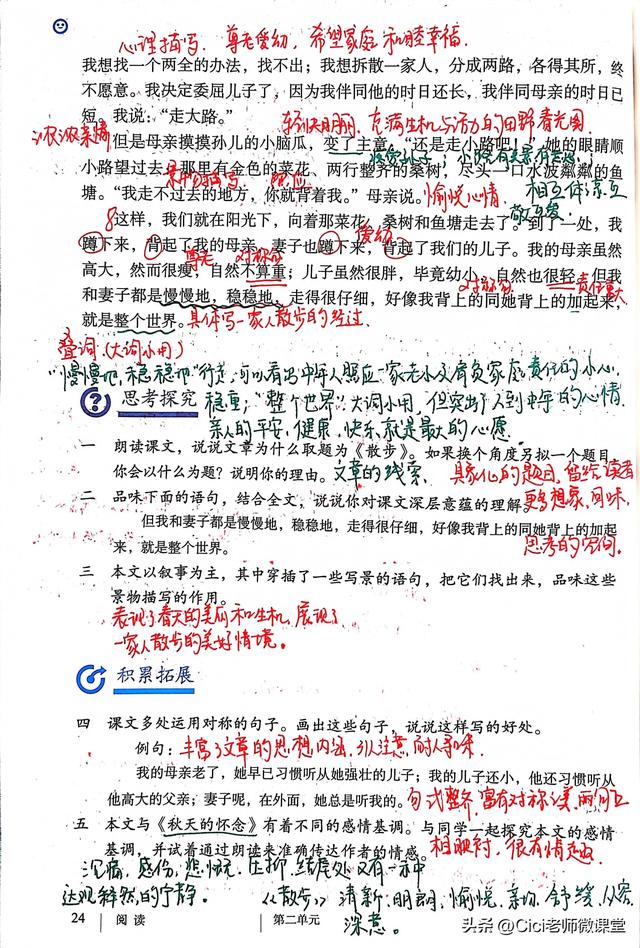 心理描写. 尊老爱幼, 希望家庭和睦幸福.
我想找一个两全的办法，找不出；我想拆散一家人，分成两路，各得其所，终
不愿意。我决定委屈儿子了，因为我伴同他的时日还长，我伴同母亲的时日已
短。我说：“走大路。”
轻快明朗, 充满生机与活力的田野春光图.
浓浓亲情
但是母亲摸摸孙儿的小脑瓜，变了主意：“还是走小路吧！”她的眼睛顺
小路望过去：那里有金色的菜花、两行整齐的桑树，尽头一口水波粼粼的鱼
景物描写
照应
塘。“我走不过去的地方，你就背着我。”母亲说。
愉悦心情.
相互体谅互敬互爱.
8这样，我们就在阳光下，向着那菜花、桑树和鱼塘走去了。到了一处，我
蹲下来，背起了我的母亲，妻子也蹲下来，背起了我们的儿子。我的母亲虽然
爱幼
尊老
对称句
高大，然而很瘦，自然不算重；儿子虽然很胖，毕竟幼小，自然也很轻。但我
对称句
责任重大
和妻子都是慢慢地，稳稳地，走得很仔细，好像我背上的同她背上的加起来，
就是整个世界。
具体写一家人散步的经过.
叠词(大词小用)
“慢慢地,稳稳地”行走,可以看出中年人照应一家老小及肩负家庭责任的小心,
思考探究
稳重;“整个世界”大词小用,但突出了人到中年的心情.
亲人的平安、健康、快乐就是最大的心愿.
一 朗读课文，说说文章为什么取题为《散步》。如果换个角度另拟一个题目，
你会以什么为题？说明你的理由。
文章的线索.
具象化的题目,留给读者
更多想象、回味、
思考的空间.
二 品味下面的语句，结合全文，说说你对课文深层意蕴的理解。
但我和妻子都是慢慢地，稳稳地，走得很仔细，好像我背上的同她背上的加起
来，就是整个世界。
三 本文以叙事为主，其中穿插了一些写景的语句，把它们找出来，品味这些
景物描写的作用。
表现了春天的美丽和生机,展现了
一家人散步的美好情境。
积累拓展
四 课文多处运用对称的句子。画出这些句子，说说这样写的好处。
例句：
丰富了文章的思想内涵,引人注意,耐人寻味.
我的母亲老了，她早已习惯听从她强壮的儿子；我的儿子还小，他还习惯听从
他高大的父亲；妻子呢，在外面，她总是听我的。
句式整齐,富有对称之美,两句互
相映衬,很有情趣.
五 本文与《秋天的怀念》有着不同的感情基调。与同学一起探究本文的感情
基调，并试着通过朗读来准确传达作者的情感。
沉痛,感伤,悲恸,压抑,结尾处又有一种
达观释然的宁静.
《散步》清新、明朗、愉悦、亲切、舒缓、从容、
深意。
24 阅读 第二单元
头条 @Cici老师微课堂